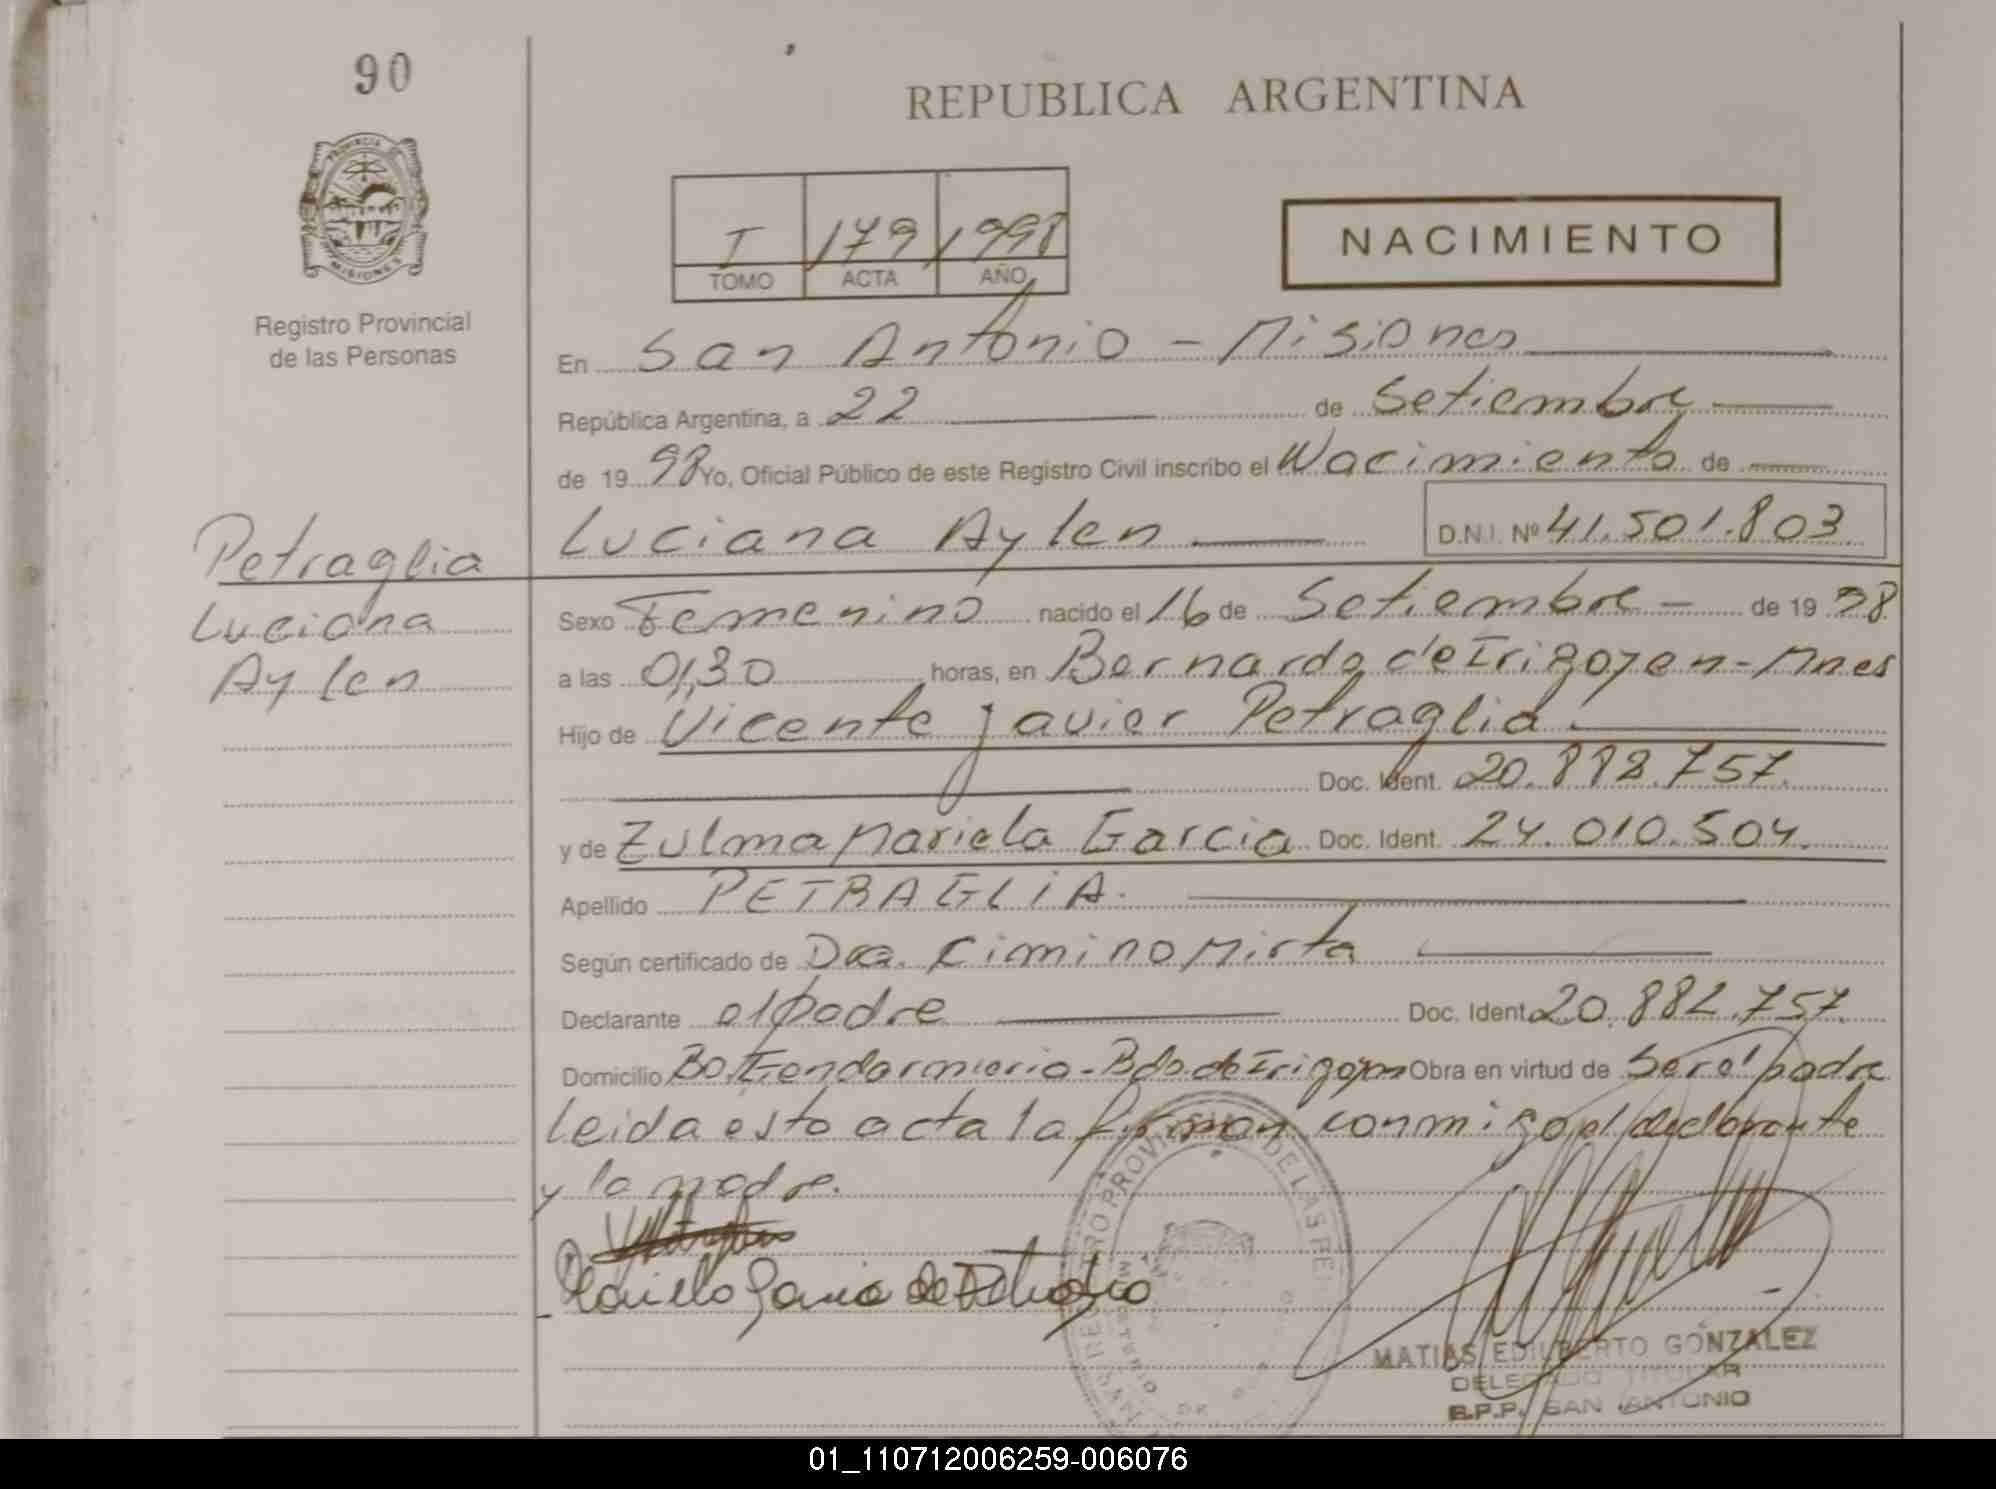 90
PROVINCIA
MISIONES
Registro Provincial
de las Personas
REPUBLICA ARGENTINA
I 179 1998
TOMO ACTA AÑO
NACIMIENTO
En San Antonio - Misiones
República Argentina, a 22 de Setiembre
de 19 98 Yo, Oficial Público de este Registro Civil inscribo el Nacimiento de
Luciana Aylen D.N.I. Nº 41.501.803
Petraglia
Luciana
Aylen
Sexo Femenino nacido el 16 de Setiembre - de 19 98
a las 01,30 horas, en Bernardo de Irigoyen - Mnes
Hijo de Vicente Javier Petraglia.
Doc. Ident. 20.882.757.
y de Zulma Mariela Garcia Doc. Ident. 24.010.504.
Apellido PETRAGLIA.
Según certificado de Dra. Cimino Mirta
Declarante el padre Doc. Ident. 20.882.757.
Domicilio Bo. Gendarmeria - Bdo de Irigoyen Obra en virtud de Ser el padre
leida esta acta la firman conmigo el declarante
y la madre.
Mariela Garcia de Petraglia
MATIAS EDILBERTO GONZALEZ
DELEGADO TITULAR
R.P.P. SAN ANTONIO
01_110712006259-006076